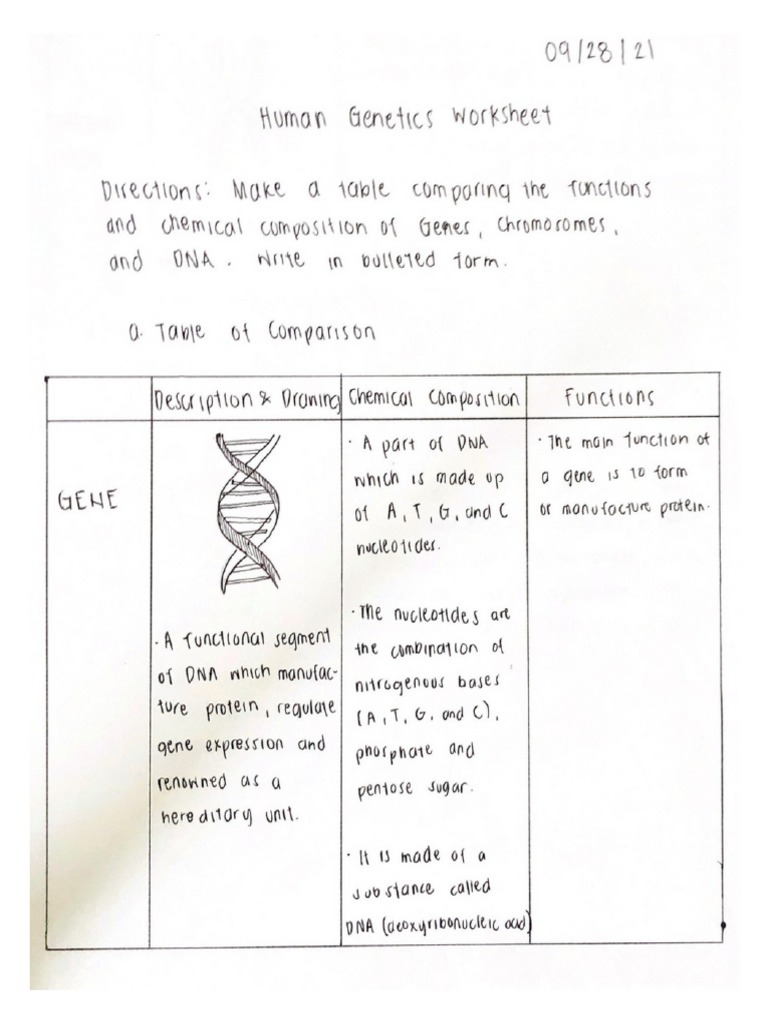 09/28/21
Human Genetics Worksheet
Directions: Make a table comparing the functions
and chemical composition of Genes, Chromosomes,
and DNA. Write in bulleted form.
a. Table of Comparison
Description & Drawing
Chemical Composition
Functions
GENE
· A functional segment
of DNA which manufac-
ture protein, regulate
gene expression and
renowned as a
hereditary unit.
· A part of DNA
which is made up
of A, T, G, and C
nucleotides.
· The nucleotides are
the combination of
nitrogenous bases
(A, T, G, and C),
phosphate and
pentose sugar.
· It is made of a
substance called
DNA (deoxyribonucleic acid)
· The main function of
a gene is to form
or manufacture protein.